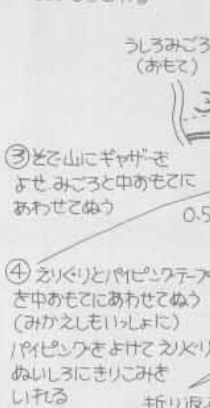 うしろみごろ
(おもて)
③そで山にギャザーを
よせ みごろと中おもてに
あわせてぬう
0.5
④えりぐりとパイピングテープ
を中おもてにあわせてぬう
(みかえしもいっしょに)
パイピングをよけてえりぐり
ぬいしろにきりこみを
いれる
折り返